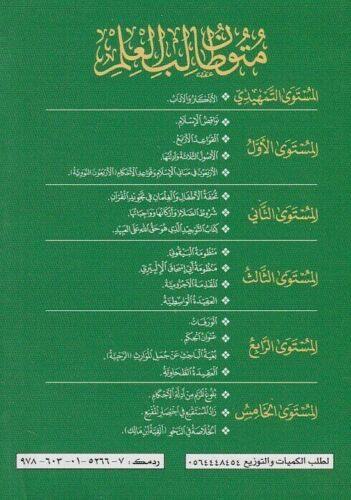 متون طالب العلم
المستوى التمهيدي
❖ الأذكار والآداب.
المستوى الأول
❖ نواقض الإسلام.
❖ القواعد الأربع.
❖ الأصول الثلاثة وأدلتها.
❖ الأربعون في مباني الإسلام وقواعد الأحكام (الأربعون النووية).
المستوى الثاني
❖ تحفة الأطفال والغلمان في تجويد القرآن.
❖ شروط الصلاة وأركانها وواجباتها.
❖ كتاب التوحيد الذي هو حق الله على العبيد.
المستوى الثالث
❖ منظومة البيقوني.
❖ منظومة أبي إسحاق الإلبيري.
❖ المقدمة الآجرومية.
❖ العقيدة الواسطية.
المستوى الرابع
❖ الورقات.
❖ عنوان الحكم.
❖ بغية الباحث عن جمل الموارث (الرحبية).
❖ العقيدة الطحاوية.
المستوى الخامس
❖ بلوغ المرام من أدلة الأحكام.
❖ زاد المستقنع في اختصار المقنع.
❖ الخلاصة في النحو (ألفية ابن مالك).
لطلب الكميات والتوزيع ٠٥٦٤٤٤٨٤٥٤
ردمك: ٧-٥٢٦٦-٠١-٦٠٣-٩٧٨